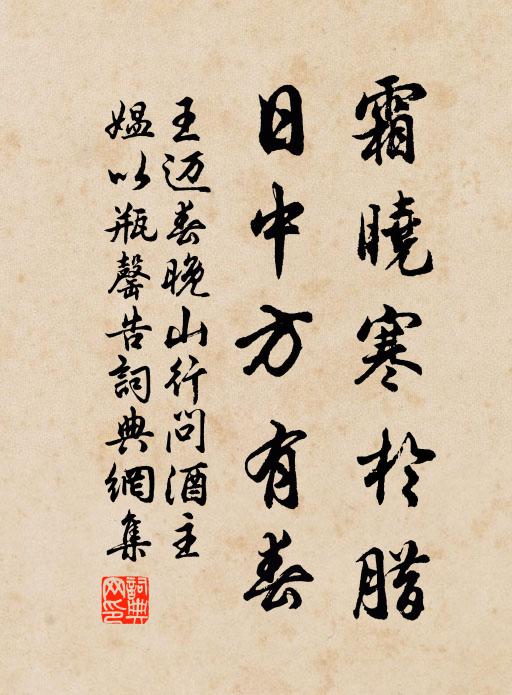 霜曉寒於腊
日中方有春
王迈春晚山行问酒主
媪以瓶罄告詞典網集
詞典
网印